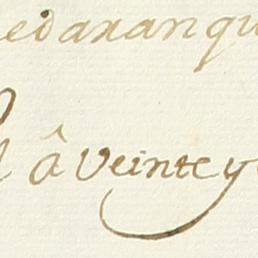 edaranqu
â veinte y